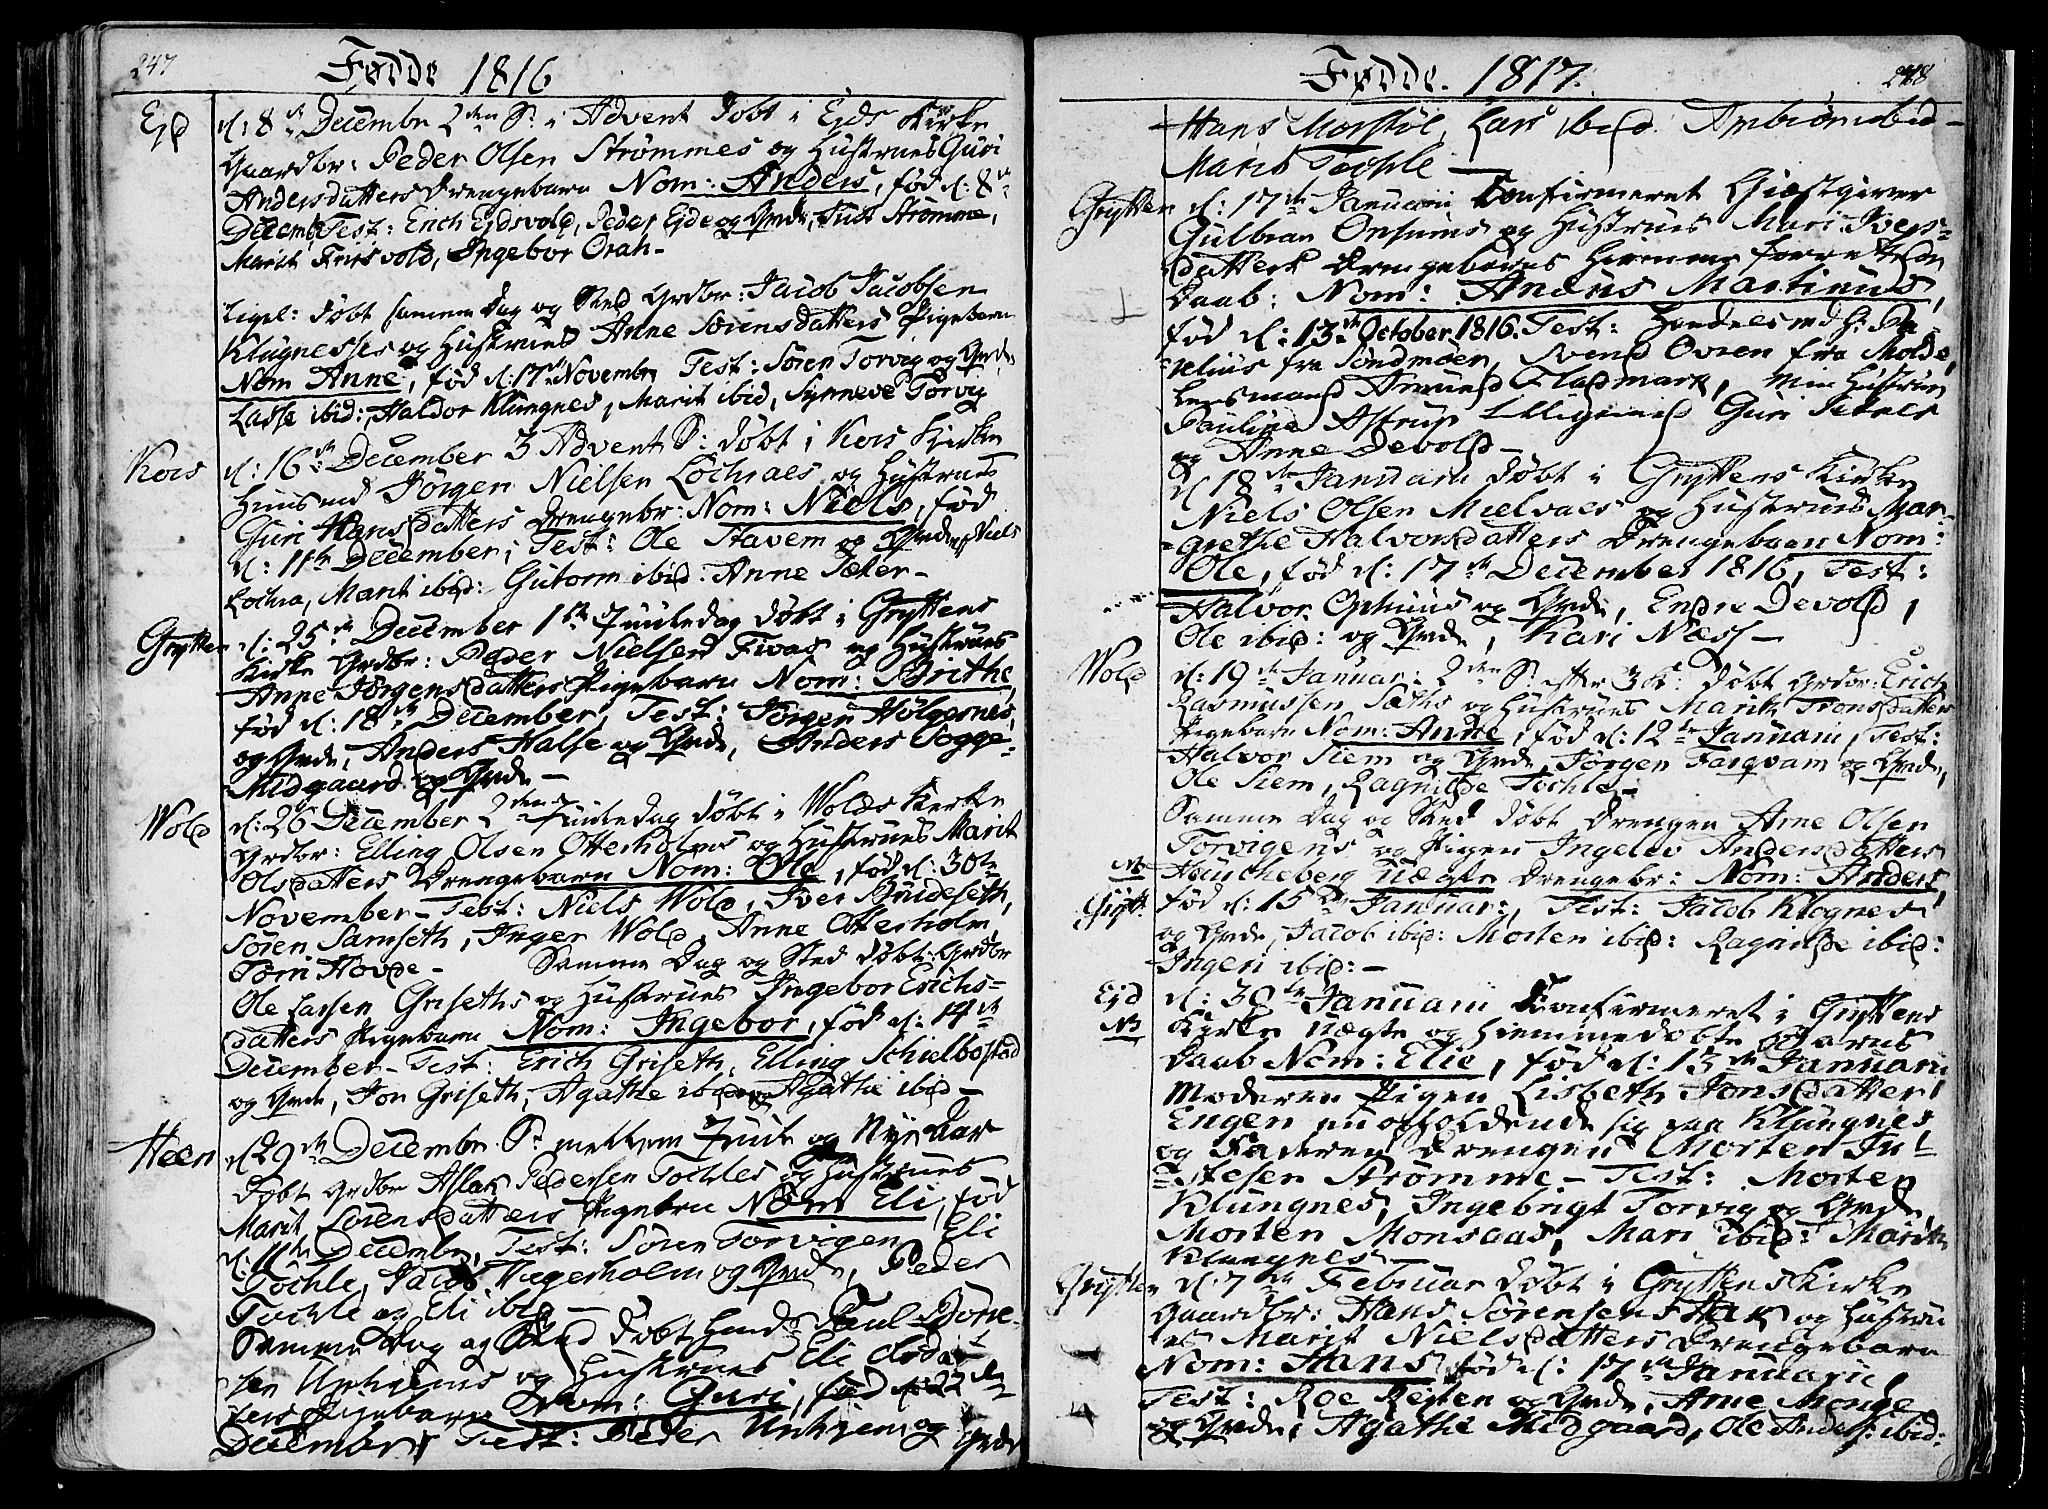 247
Fødde 1816
Ejd
d: 8de Decembr 2den S: i Advent Døbt i Ejds Kirke
Gaardbr: Peder Olsen Strømmes og Hustrues Guri
Andersdatters Drengebarn Nom: Anders, fød d: 8de
Decemb Test: Erich Ejdsvold, Peder Ejde og Grde, Just Strømme,
Marit Frisvold, Ingebor Orah-
Ligel: døbt samme Dag og Sted Grdbr: Jacob Jacobsen
Klugnesses og Hustrues Anne Sørensdatters Pigebarn
Nom Anne, fød d: 17de Novembr Test: Søren Torvig og Grde,
Lasse ibid: Haldor Klungnes, Marit ibid, Synneve Torvig
Kors
d: 16de December 3 Advent S: døbt i Kors Kirke
Huusmd Jørgen Nielsen Lochraes og Hustrues
Guri Hansdatters Drengebr: Nom: Niels, fød
d: 11te December; Test: Ole Stavem og Grde, Niels
Lochra, Marit ibid: Gutorm ibid: Anne Sæter-
Grytten
d: 25de December 1ste Juuledag døbt i Gryttens
Kirke Grdbr: Peder Nielsen Fivas og Hustrues
Anne Jørgensdatters Pigebarn Nom: Brithe
fød d: 18de December, Test: Jørgen Holgernes,
og Grde, Anders Halse og Grde, Anders Sogge-
Midgaard og Grde-
Wold
d: 26 December 2den Juuledag døbt i Wolds Kirke
Grdbr: Elling Olsen Otterholms og Hustrues Marit
Olsdatters Drengebarn Nom: Ole, fød d: 30te
November- Test: Niels Wold, Iver Brudeseth,
Søren Samseth, Inger Wold, Anne Otterholm,
Torn Hovde- Samme Dag og Sted døbt: Grdbr
Ole Larsen Griseths og Hustrues Ingebor Erichs-
datters Pigebarn Nom: Ingebor, fød d: 14de
December- Test: Erich Griseth, Elling Schielbostad
og Grde, Jon Griseth, Agathe ibid og Agathe ibid-
Heen
d 29de Decembr S: mellem Juul og Nyeaar
Døbt Grdbr Aslak Pedersen Tochles og Hustrues
Marit Sørensdatters Pigebrn Nom Eli, fød
d: 11te Decembr, Test: Søren Torvigen, Eli
Tochle, Jacob Hagerholm og Grde, Peder
Tochle og Eli ibid-
Samme Dag og Sted døbt Huusmd Paul Børe-
sen Unhiems og Hustrues Eli Arda-
ters Pigebarn Nom: Guri, fød d: 22den
December, Test: Peder Unhjem og Grde
Fødde. 1817.
248
Hans Morstøl, Lars ibid. Ambiørn ibid-
Marit Tochle-
Grytten
d: 17de Januarii Confirmeret Giæstgiver
Gulbran Onsums og Hustrues Mari Ivers-
datters Drengebarns Hiemme forrettede
Daab: Nom: Andrs Martinus,
fød d: 13de October 1816. Test: Handelsmd H: Pa-
nelius fra Søndmøer, Svend Ovren fra Molde,
Lensmand Amund Fladmark, Min Hustrue
Pauline Astrup Elligerud Guri Setnes
og Anne Devold-
d 18de Januarii døbt i Gryttens Kirke
Niels Olsen Mielvaes og Hustrues Mar-
grethe Halvorsdatters Drengebarn Nom:
Ole, fød d: 17de December 1816, Test:
Halvor Ophuus og Grde, Endre Devold,
Ole ibid: og Grde, Kari Næss-
Wold
d: 19de Januar: 2den S: efter 3de: døbt Grdbr: Erich
Rasmussen Sæths og Hustrues Marit Tronsdatters
Pigebarn Nom: Anne, fød d: 12te Januarii, Test:
Halvor Siem og Grde, Jørgen Farqvam og Grde,
Ole Siem, Ragnilde Tochle-
Samme Dag og Sted døbt Drengen Arne Olsen
Torvigens og Pigen Ingelev Andersdatters
NB
Heucheberg uægte Drengebr: Nom: Anders
Grytt:
fød d: 15de Januar:, Test: Jacob Klognes
og Grde, Jacob ibid: Morten ibid: Ragnilde ibid:
Ingeri ibid:-
Ejd
NB
d: 30te Januarii Confirmeret i Gryttens
Kirke uægte og Hiemmedøbte Barns
Daab Nom: Elie, fød d: 13de Januarii
Moderen Pigen Lisbeth Jonsdatter
Engen nu opholdende sig paa Klungnes
og Faderen Drengen Morten Ju-
stesen Strømme- Test: Morten
Klungnes, Ingebrigt Torvig og Grde,
Morten Monsaas, Mari ibid: Marith
Klungnes-
Grytten
d: 7de Februar døbt i Gryttens Kirke
Gaardbr: Hans Sørensens Hak og Hustru
es Marit Nielsdatters Drengebarn
Nom: Hans fød d: 17de Januarii,
Test: Roe Resten og Grde, Arne Monge
og Grde, Agathe Midgaard, Ole Anders: ibid: